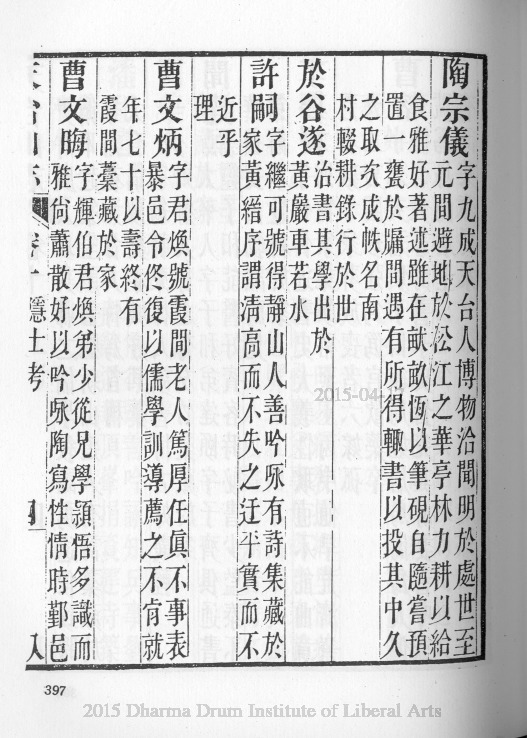 陶宗儀字九成天台人博物洽聞明於處世至
元間避地於松江之華亭林力耕以給
食雅好著述雖在畎畝恆以筆硯自隨嘗預
置一甕於牖間遇有所得輒書以投其中久
之取次成帙名南
村輟耕錄行於世
於谷遂治書其學出於
黃巖車若水
許嗣字繼可號得靜山人善吟咏有詩集藏於
家黃縉序謂清高而不失之迂平實而不
近乎
理
曹文炳字君煥號霞間老人篤厚任眞不事表
暴邑令佟復以儒學訓導薦之不肯就
年七十以壽終有
霞間藁藏於家
曹文晦字輝伯君煥弟少從兄學頴悟多識而
雅尙蕭散好以吟咏陶寫性情時鄞邑
天台山志 卷十 隱士考 四
397
2015-04-17
2015 Dharma Drum Institute of Liberal Arts